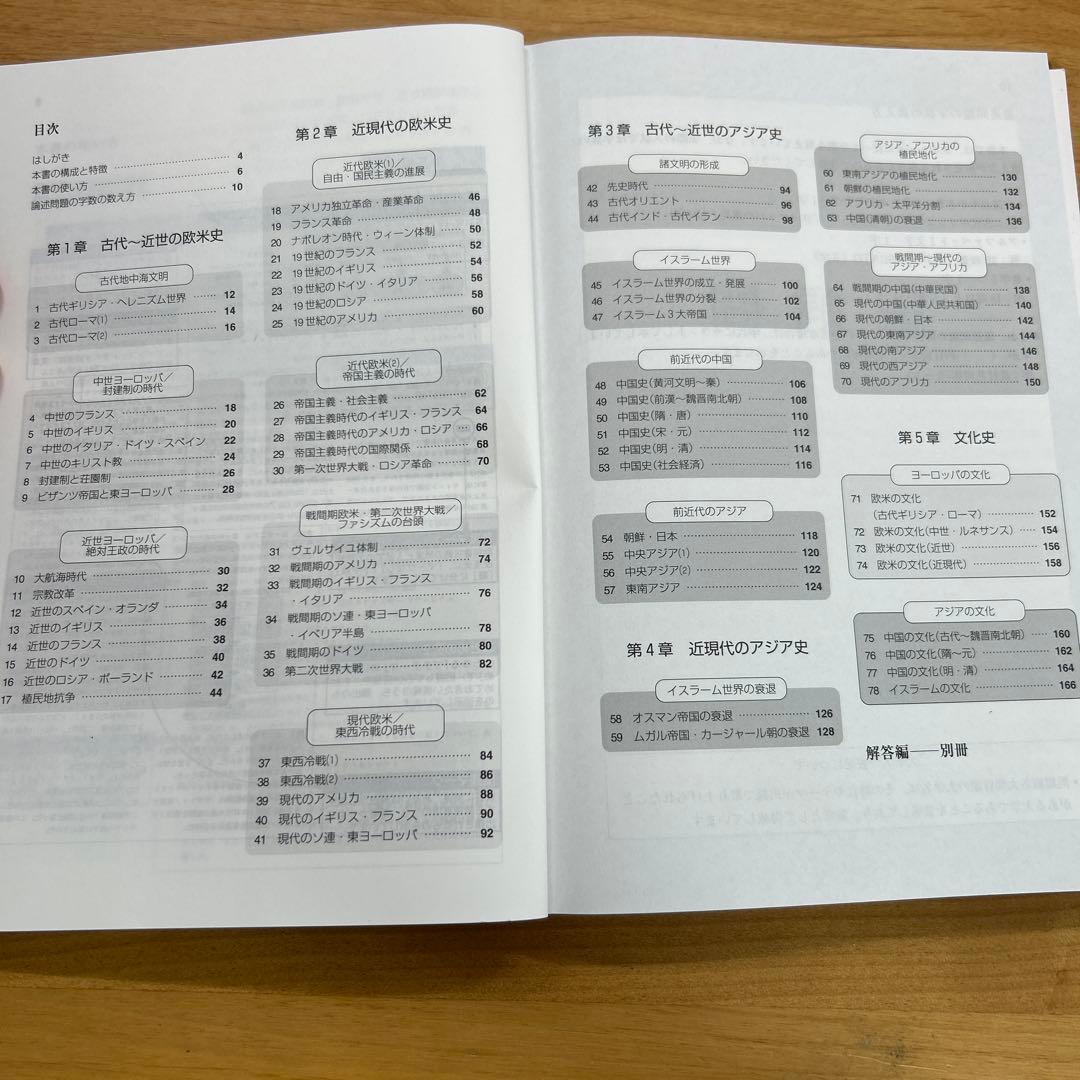 目次
はしがき 4
本書の構成と特徴 6
本書の使い方 8
論述問題の字数の数え方 10
第1章 古代〜近世の欧米史
古代地中海文明
1 古代ギリシア・ヘレニズム世界 12
2 古代ローマ(1) 14
3 古代ローマ(2) 16
中世ヨーロッパ/
封建制の時代
4 中世のフランス 18
5 中世のイギリス 20
6 中世のイタリア・ドイツ・スペイン 22
7 中世のキリスト教 24
8 封建制と荘園制 26
9 ビザンツ帝国と東ヨーロッパ 28
近世ヨーロッパ/
絶対王政の時代
10 大航海時代 30
11 宗教改革 32
12 近世のスペイン・オランダ 34
13 近世のイギリス 36
14 近世のフランス 38
15 近世のドイツ 40
16 近世のロシア・ポーランド 42
17 植民地抗争 44
第2章 近現代の欧米史
近代欧米(1)/
自由・国民主義の進展
18 アメリカ独立革命・産業革命 46
19 フランス革命 48
20 ナポレオン時代・ウィーン体制 50
21 19世紀のフランス 52
22 19世紀のイギリス 54
23 19世紀のドイツ・イタリア 56
24 19世紀のロシア 58
25 19世紀のアメリカ 60
近代欧米(2)/
帝国主義の時代
26 帝国主義・社会主義 62
27 帝国主義時代のイギリス・フランス 64
28 帝国主義時代のアメリカ・ロシア 66
29 帝国主義時代の国際関係 68
30 第一次世界大戦・ロシア革命 70
戦間期欧米・第二次世界大戦/
ファシズムの台頭
31 ヴェルサイユ体制 72
32 戦間期のアメリカ 74
33 戦間期のイギリス・フランス
・イタリア 76
34 戦間期のソ連・東ヨーロッパ
・イベリア半島 78
35 戦間期のドイツ 80
36 第二次世界大戦 82
現代欧米/
東西冷戦の時代
37 東西冷戦(1) 84
38 東西冷戦(2) 86
39 現代のアメリカ 88
40 現代のイギリス・フランス 90
41 現代のソ連・東ヨーロッパ 92
第3章 古代〜近世のアジア史
諸文明の形成
42 先史時代 94
43 古代オリエント 96
44 古代インド・古代イラン 98
イスラーム世界
45 イスラーム世界の成立・発展 100
46 イスラーム世界の分裂 102
47 イスラーム3大帝国 104
前近代の中国
48 中国史(黄河文明〜秦) 106
49 中国史(前漢〜魏晋南北朝) 108
50 中国史(隋・唐) 110
51 中国史(宋・元) 112
52 中国史(明・清) 114
53 中国史(社会経済) 116
前近代のアジア
54 朝鮮・日本 118
55 中央アジア(1) 120
56 中央アジア(2) 122
57 東南アジア 124
第4章 近現代のアジア史
イスラーム世界の衰退
58 オスマン帝国の衰退 126
59 ムガル帝国・カージャール朝の衰退 128
アジア・アフリカの
植民地化
60 東南アジアの植民地化 130
61 朝鮮の植民地化 132
62 アフリカ・太平洋分割 134
63 中国(清朝)の衰退 136
戦間期〜現代の
アジア・アフリカ
64 戦間期の中国(中華民国) 138
65 現代の中国(中華人民共和国) 140
66 現代の朝鮮・日本 142
67 現代の東南アジア 144
68 現代の南アジア 146
69 現代の西アジア 148
70 現代のアフリカ 150
第5章 文化史
ヨーロッパの文化
71 欧米の文化
(古代ギリシア・ローマ) 152
72 欧米の文化(中世・ルネサンス) 154
73 欧米の文化(近世) 156
74 欧米の文化(近現代) 158
アジアの文化
75 中国の文化(古代〜魏晋南北朝) 160
76 中国の文化(隋〜元) 162
77 中国の文化(明・清) 164
78 イスラームの文化 166
解答編──別冊